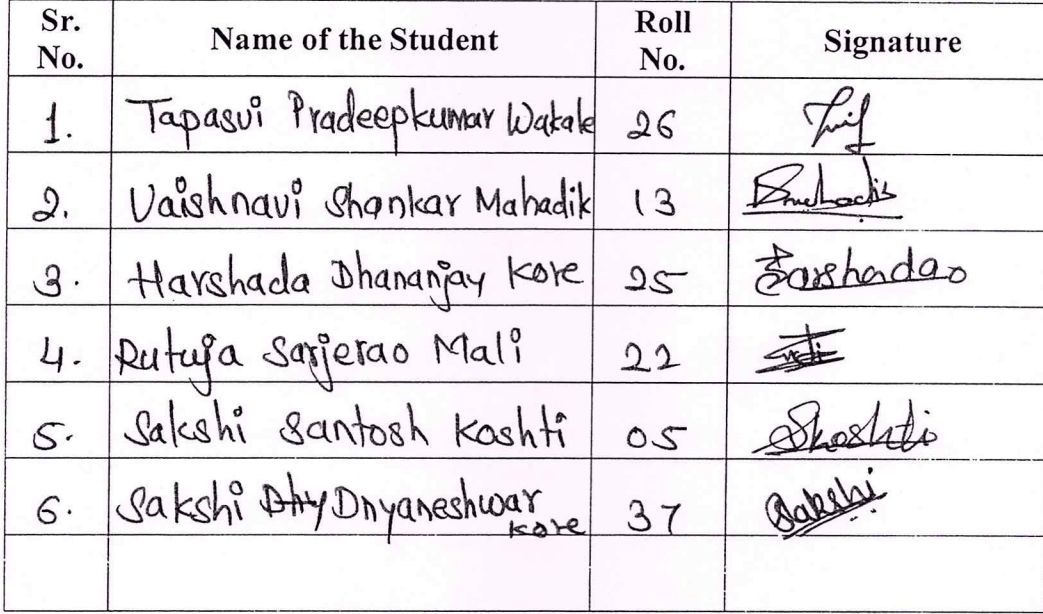 Sr. No. Name of the Student Roll No. Signature
1. Tapasvi Pradeepkumar Wakale 26
2. Vaishnavi Shankar Mahadik 13
3. Harshada Dhananjay Kore 25 Harshada
4. Rutuja Sarjerao Mali 22
5. Sakshi Santosh Koshti 05 Skoshti
6. Sakshi Dnyaneshwar Kore 37 Sakshi